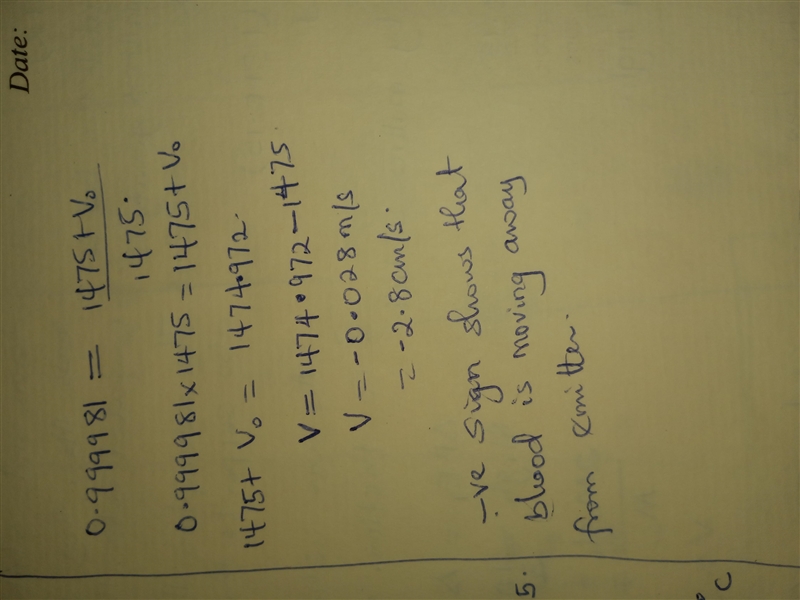 Date:
0.999981 = 1475+V₀
1475.
0.999981×1475=1475+V₀
1475+ V₀ = 1474.972.
V=1474.972-1475
V=-0.028m/s
=-2.8cm/s.
-ve sign shows that
blood is moving away
from emitter.
5.
°C